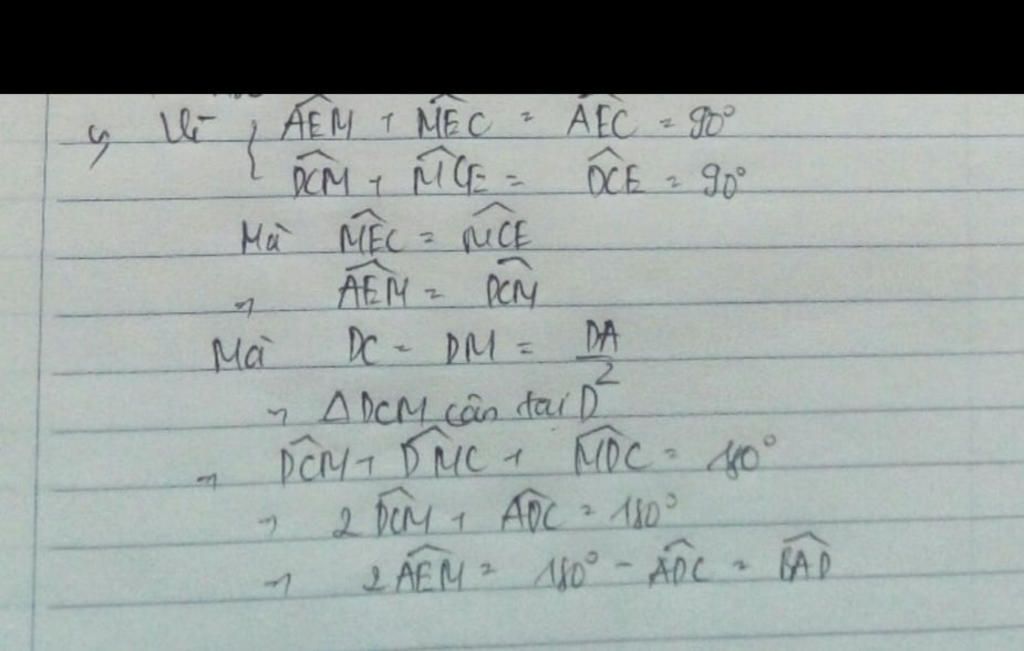 c, Vì { AÊM + MÊC = AÊC = 90°
DĈM + MĈE = DĈE = 90°
Mà MÊC = MĈE
→ AÊM = DĈM
Mà DC = DM = DA/2
→ ΔDCM cân tại D
→ DĈM + DM̂C + MD̂C = 180°
→ 2DĈM + AD̂C = 180°
→ 2AÊM = 180° - AD̂C = BÂD